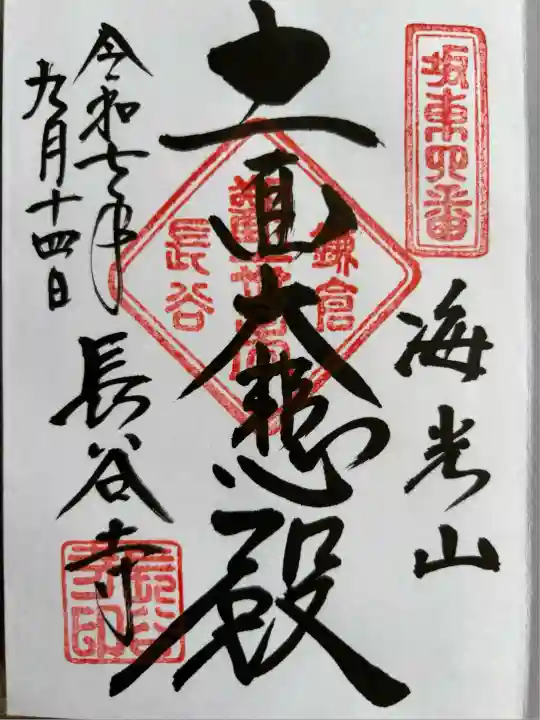 坂東四番
海光山
鎌倉
十一面大悲殿
長谷
令和七年
九月十四日
長谷寺
長谷寺印